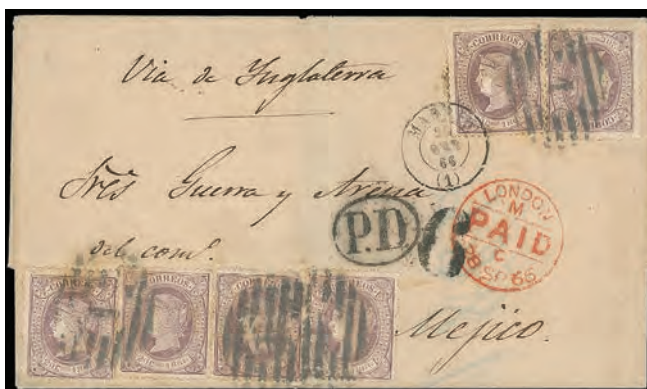 CORREOS
Via de Inglaterra
MADRID
66
(1)
Sres Guerra y Arena
del comº.
P.D
6
LONDON
M
PAID
C
SP 66
CORREOS
CORREOS
Mejico.